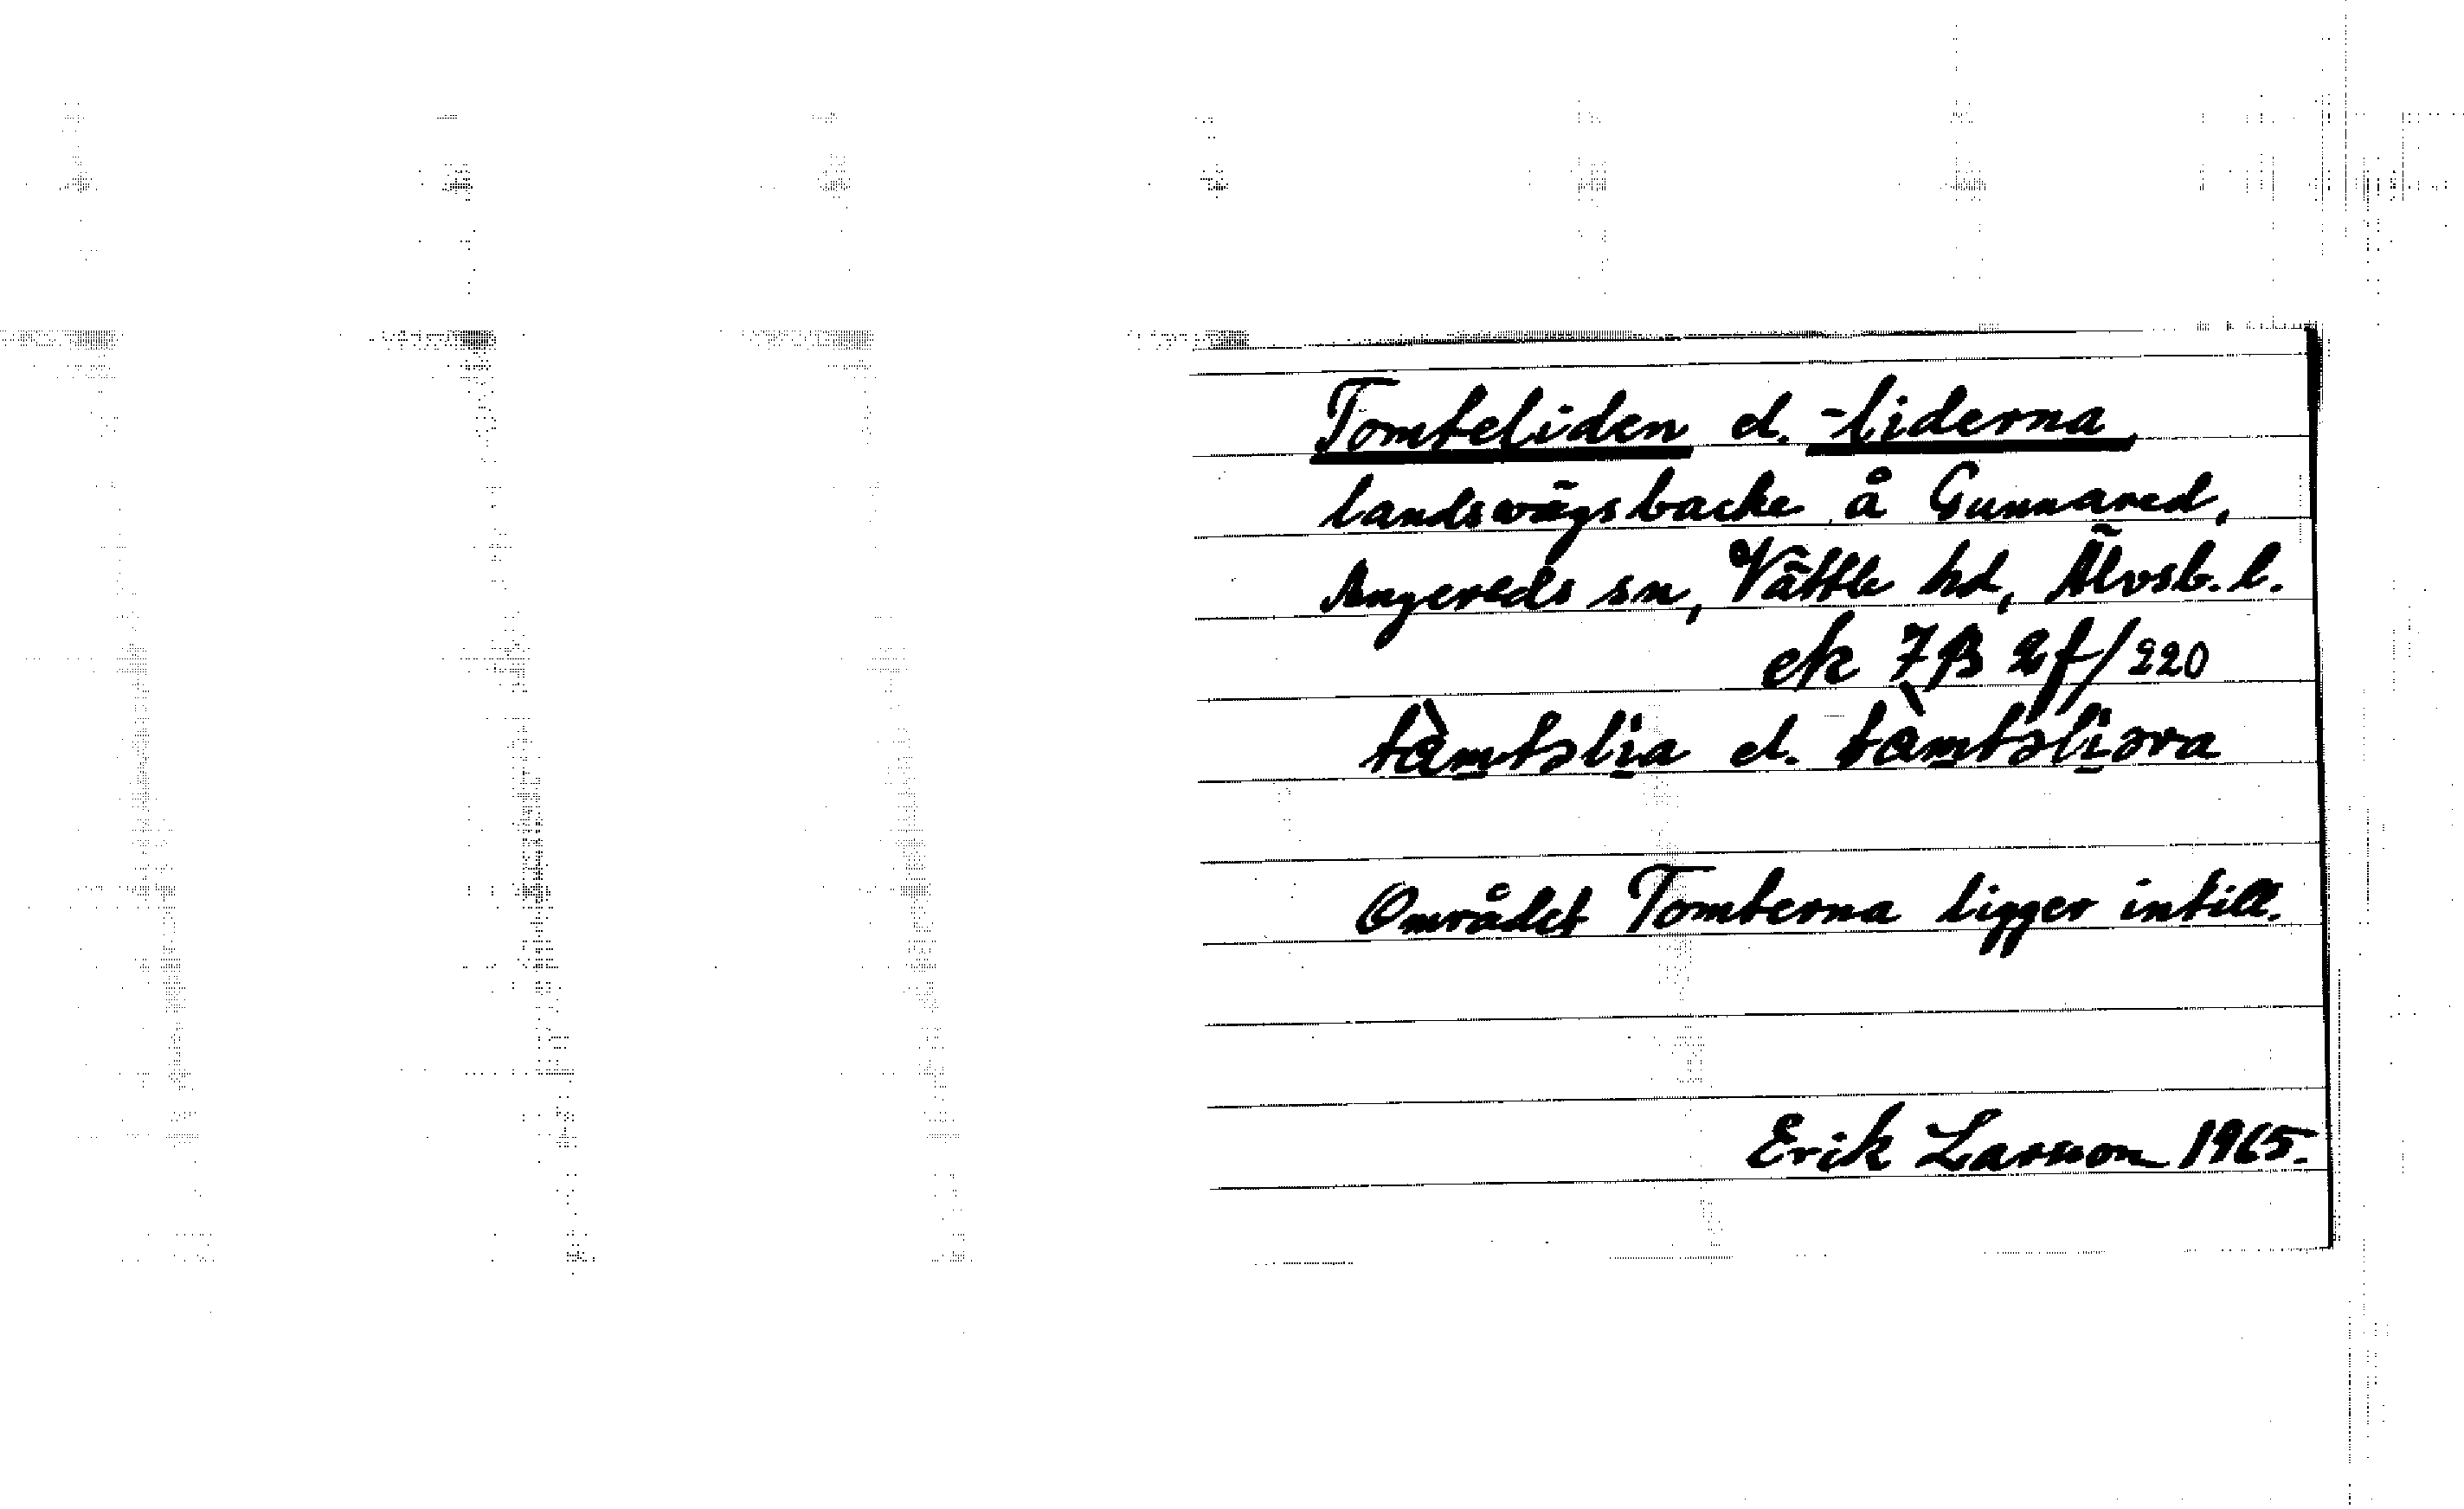 Tomteliden el. -liderna
landsvägsbacke å Gunnared,
Angereds sn, Vättle hd, Älvsb. l.
ek 7B 2f/220
tàmtəlia el. tàmtəliəra
Området Tomterna ligger intill.
Erik Larsson 1965.